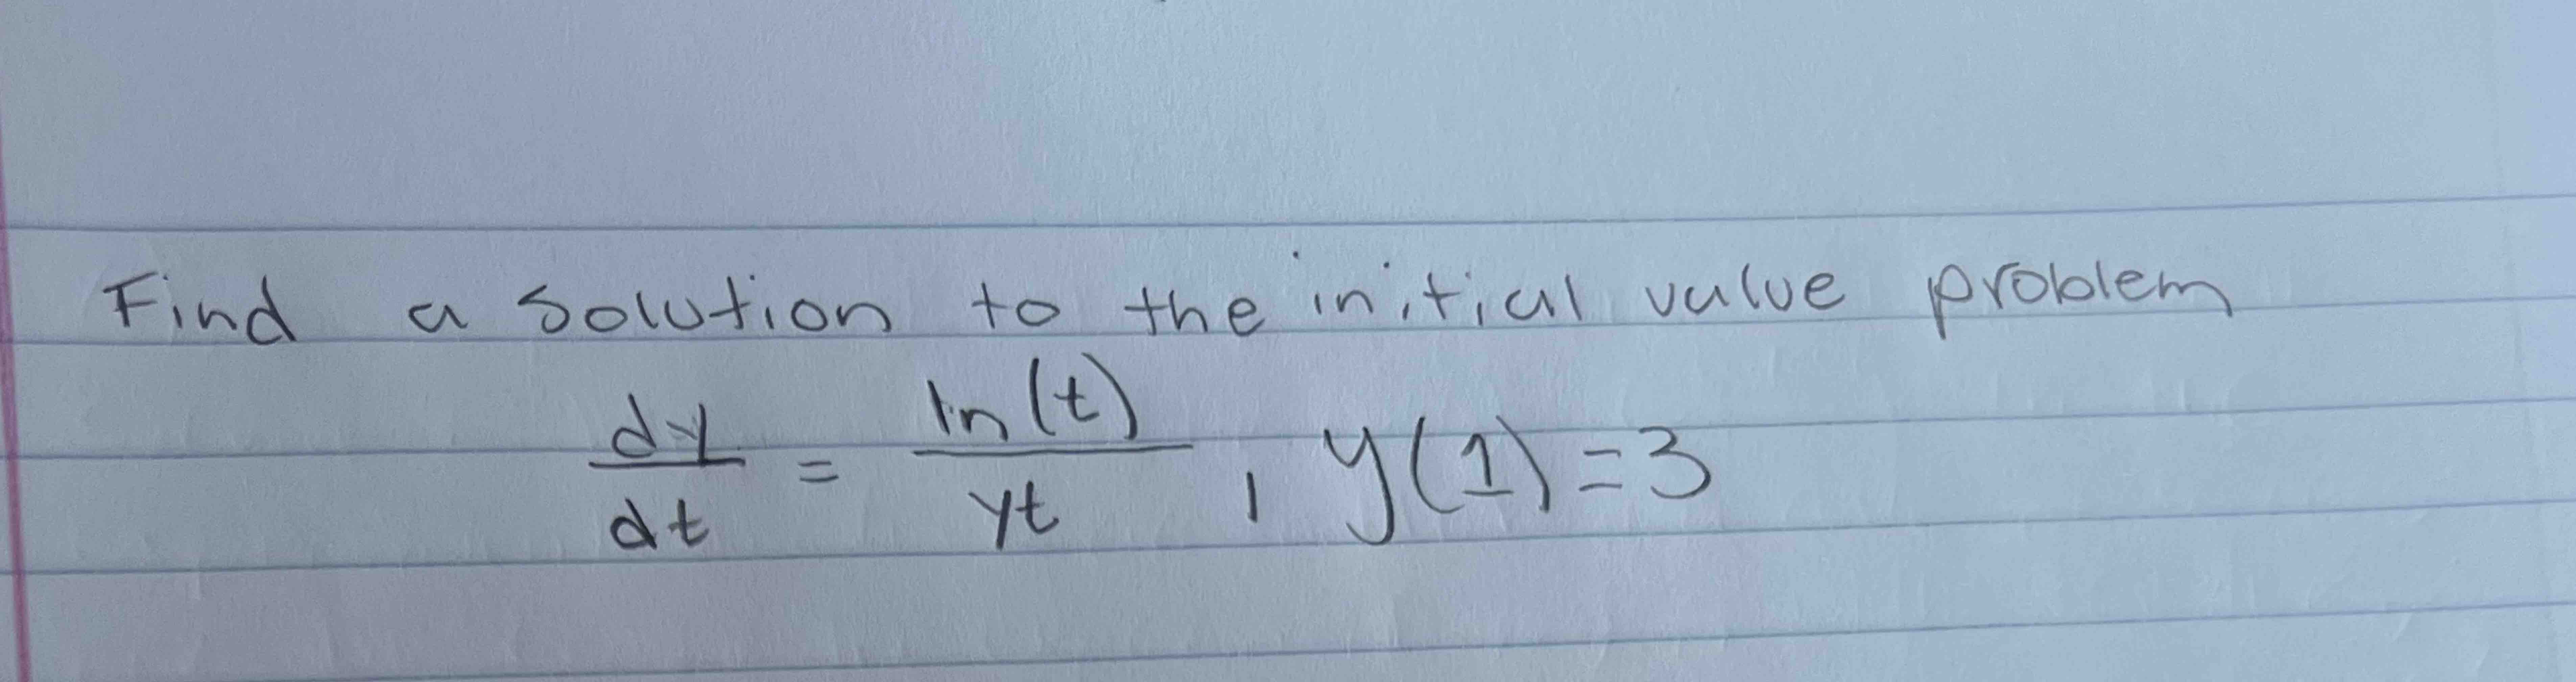 Find a solution to the initial value problem
dy/dt = ln(t)/yt , y(1)=3